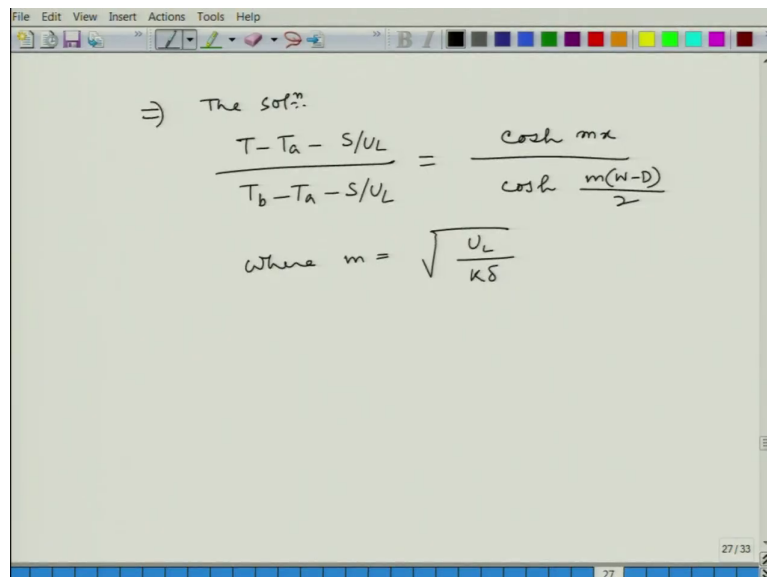 File Edit View Insert Actions Tools Help
B I
⇒ The solⁿ.
T - Ta - S/UL / Tb - Ta - S/UL = cosh mx / cosh m(W-D)/2
where m = √(UL / Kδ)
27/33
27